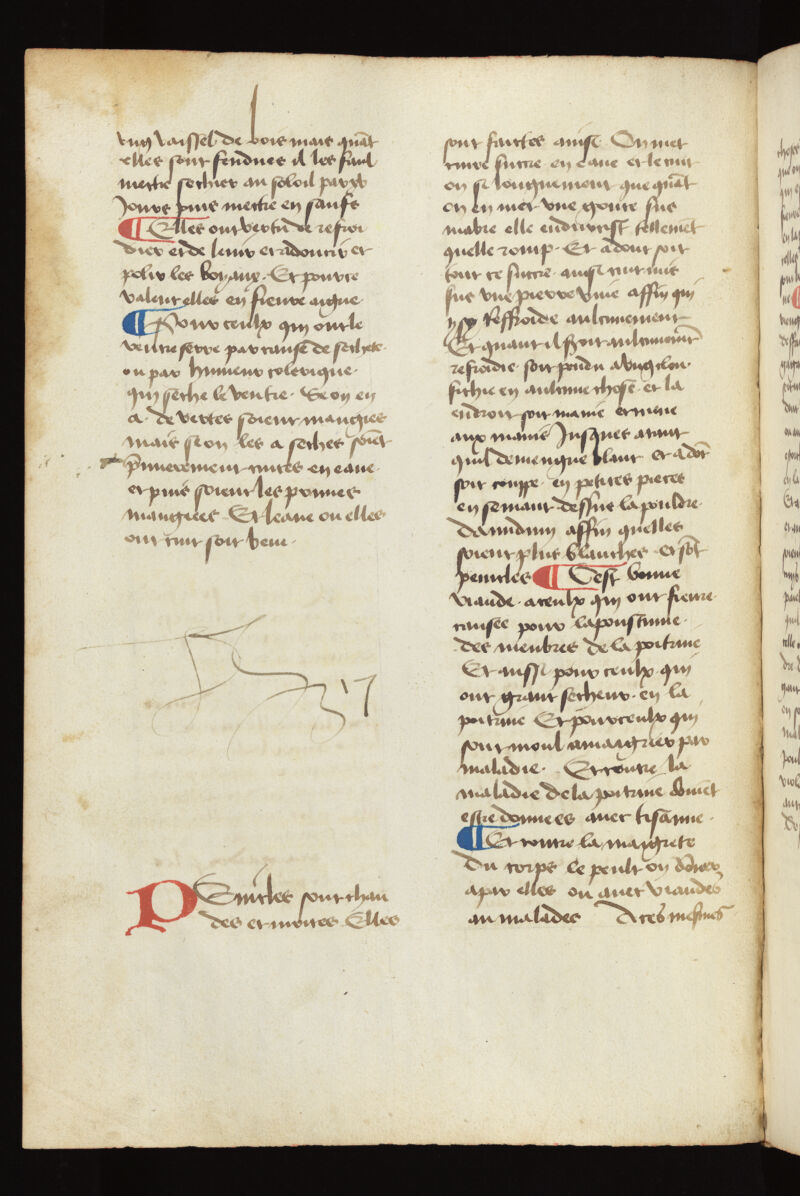 vng vaissel de bois mais quāt
elles sont fendues il les fault
mettre sechier au soleil par xv
Jours puis mettre en saufs
¶ Elles ont vertu de refroi
dier et de lenir et adoulcir et
polir les boyaux. Et pource
valent elles en fieure aigue.
¶ Pour ceulx qui ont le
ventre serre par cause de sechete
ou par humeur colerique
qui seche le ventre. Se on en
a de vertes soient mangies
mais se on les a seches soiēt
p̄mierement cuites en eaue
et puis soient les prunes
mangiees. Et leaue ou elles
ont cuit soit beue.
37
PEnicles sont chau
des et moites Elles
sont faictes ainsi. On met
cuire succre en eaue et le cuit
on si longuement que quāt
on en met vne goute sus
mabre elle endurcist tellemēt
quelle romp. Et adont soit
tout ce succre ainsi cuit mis
sus vne pierre viue affin qui
ysy reffroide aulcunement
Et quant il sera aulcunemēt
refroidie soit pendu a vng clou
fichie en aulcune chose et la
endroit soit manie et mene
aux mains Jusques atant
quil deuiengne blanc et adōt
soit couppe en petites pieces
en semant dessus la pouldre
damidum affin quelles
soient plus blanches et sōt
penicles ¶ Cest bonne
viande a ceulx qui ont fieure
causee pour lapostume
des menbres de la poitrine
Et aussi pour ceulx qui
ont grant secheur en la
poitrine Et pour ceulx qui
sont moul amaigriez par
maladie. Et contre la
maladie de la poitrine doiuēt
estre donnees auec tisanne
¶ Et contre la maigrete
du corps le peult on donner
apar elles ou auec viandes
au malades A ces mesmes